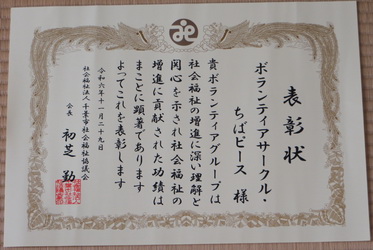 表彰状
ボランティアサークル・
ちばピース 様
貴ボランティアグループは
社会福祉の増進に深い理解と
関心を示され社会福祉の
増進に貢献された功績は
まことに顕著であります
よってこれを表彰します
令和六年十一月二十九日
社会福祉法人千葉市社会福祉協議会
会長 初芝 勤